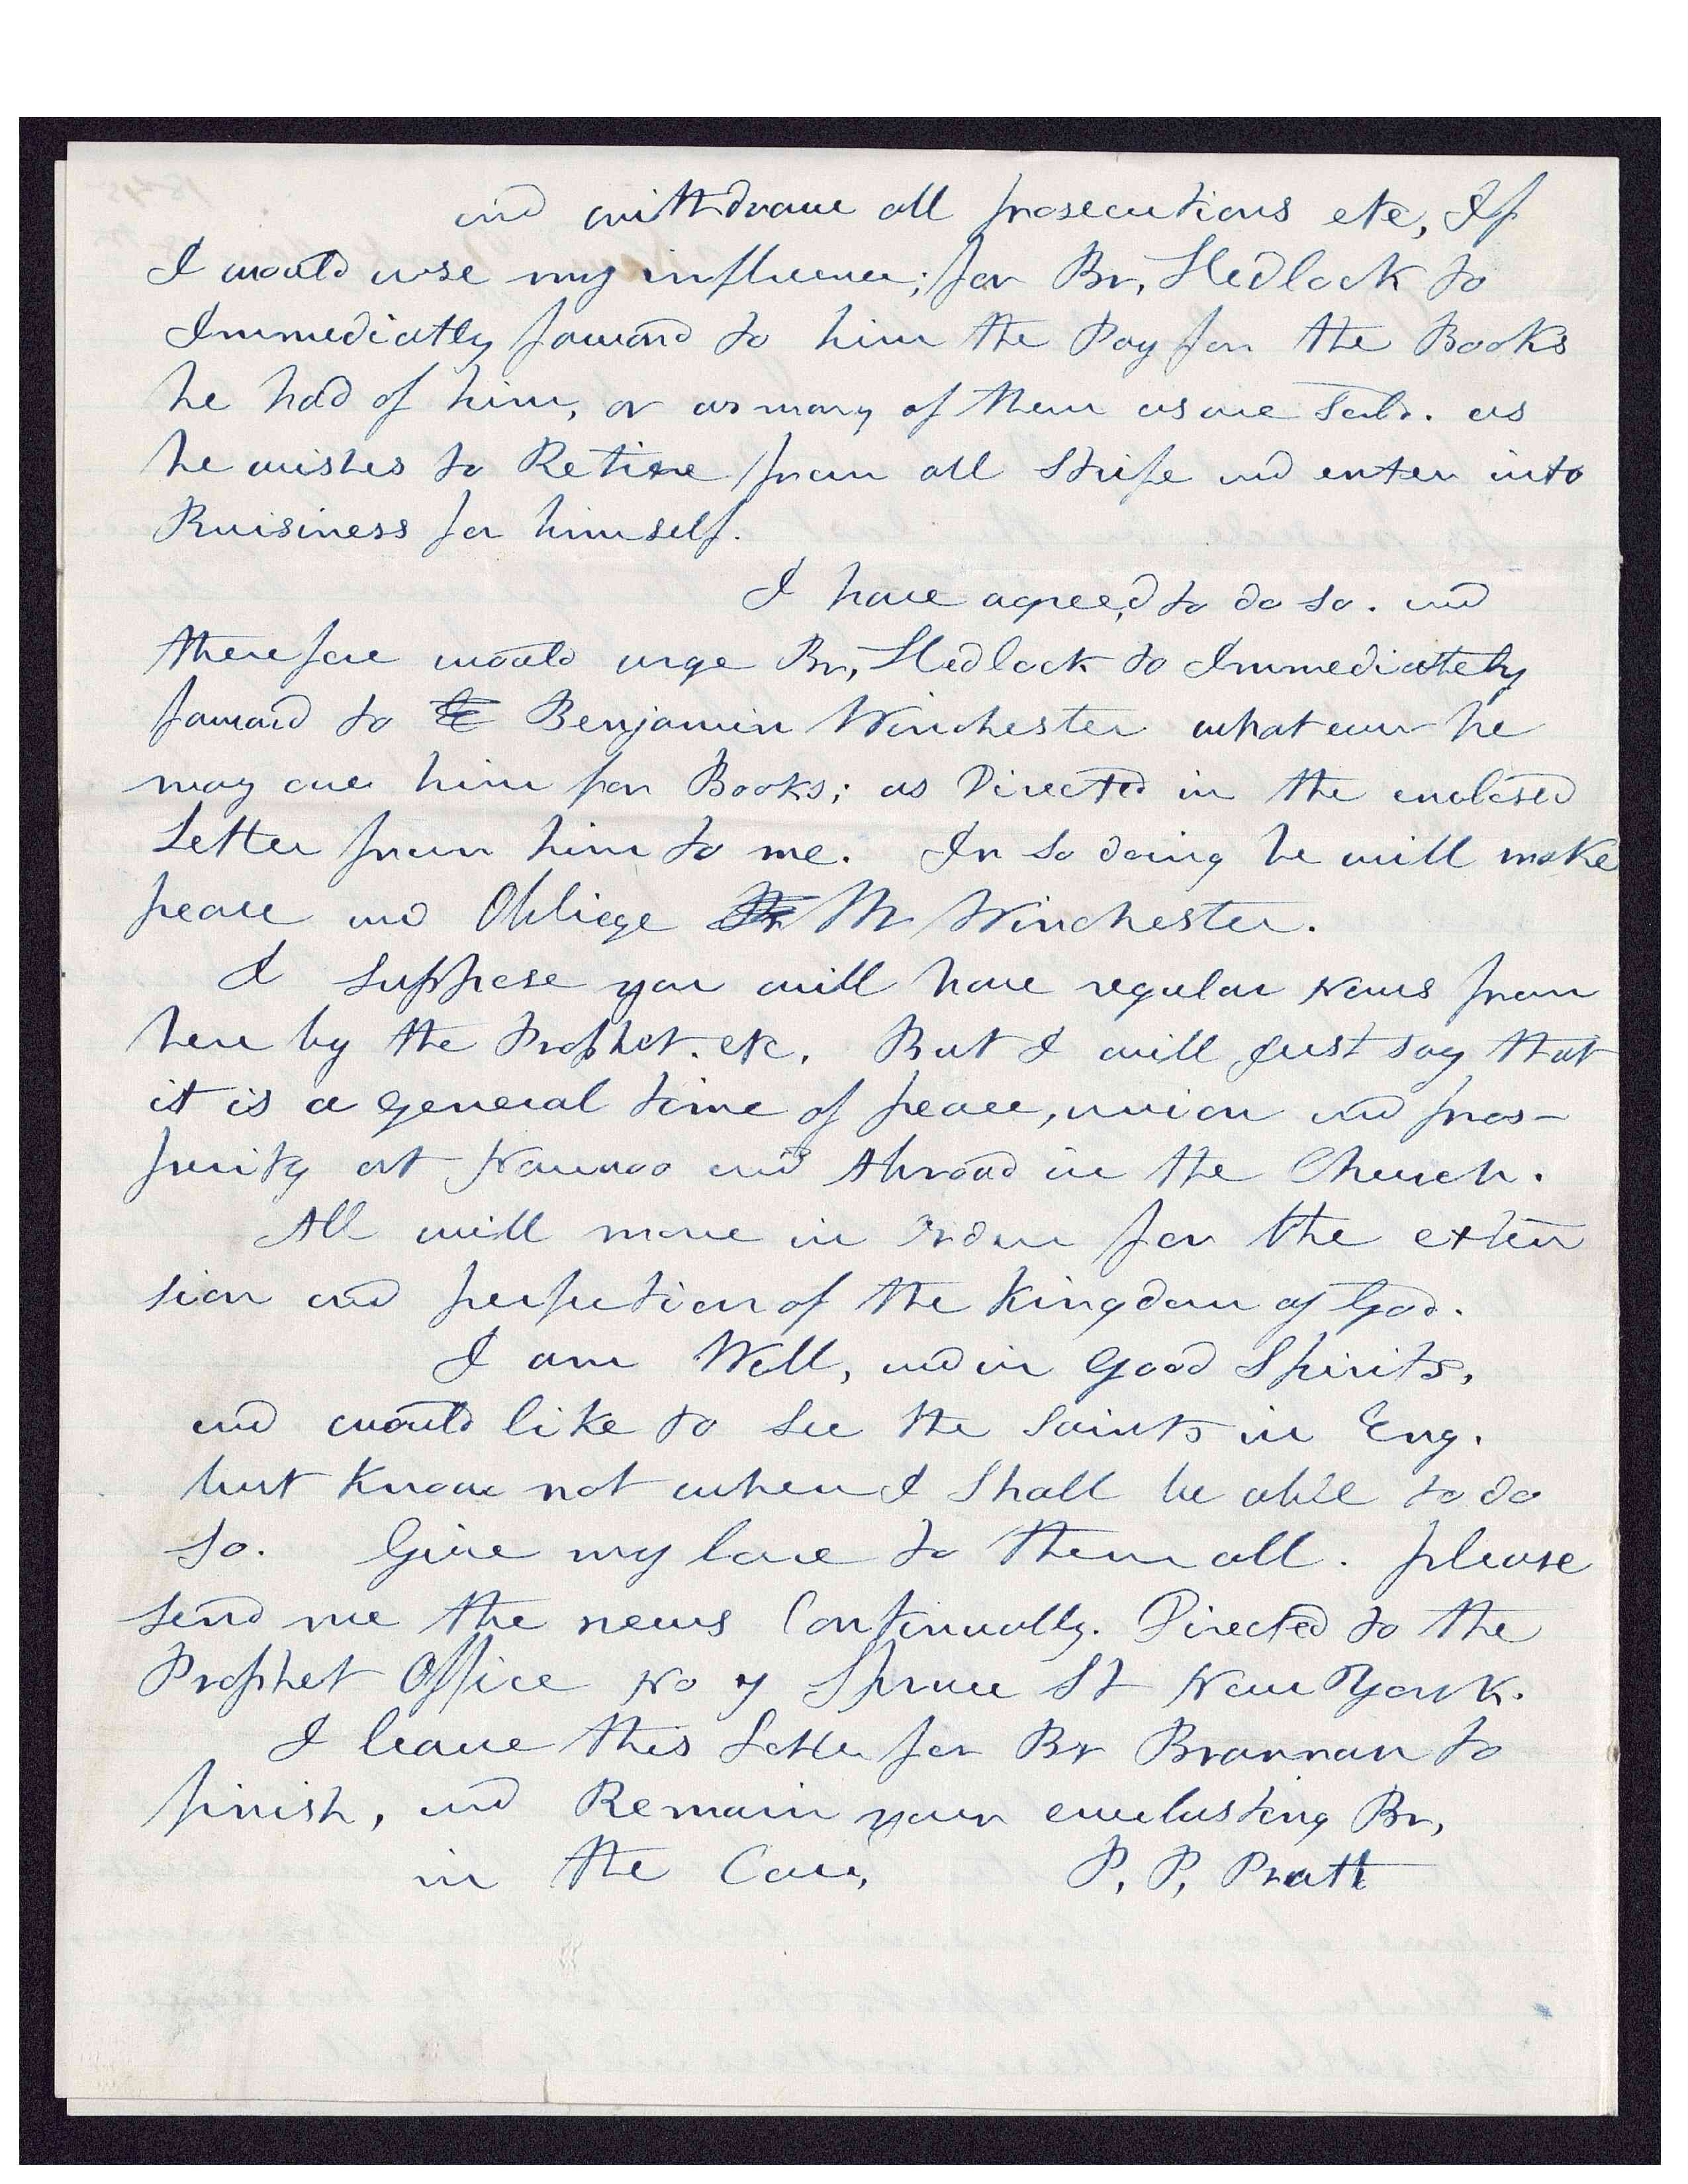 and withdraw all prosecutions etc, If
I would use my influence; for Br, Hedlock to
Immediatly foward to him the Pay for the Books
he had of him, or as many of them as are Sold. as
he wishes to Retire from all Strife and enter into
Buisiness for himself.
I have agreed to do so. and
therefore would urge Br, Hedlock to Immediately
foward to Benjamin Winchester what ever he
may owe him for Books; as Directed in the enclosed
Letter from him to me. In so doing he will make
peace and Obliege Mr Winchester.
I suppose you will have regular News from
here by the Prophet. etc. But I will Just say that
it is a general time of peace, union and pros-
perity at Nauvoo and Abroad in the Church.
All will move in order for the exten
sion and perfection of the Kingdom of God.
I am Well, and in Good Spirits,
and would like to see the saints in Eng.
but Know not when I Shall be able to do
so. Give my love to them all. please
send me the news Continually. Directed to the
Prophet Office No 7 Spruce St New York.
I leave this Letter for Br Brannan to
finish, and Remain your everlasting Br,
in the Cov, P. P. Pratt